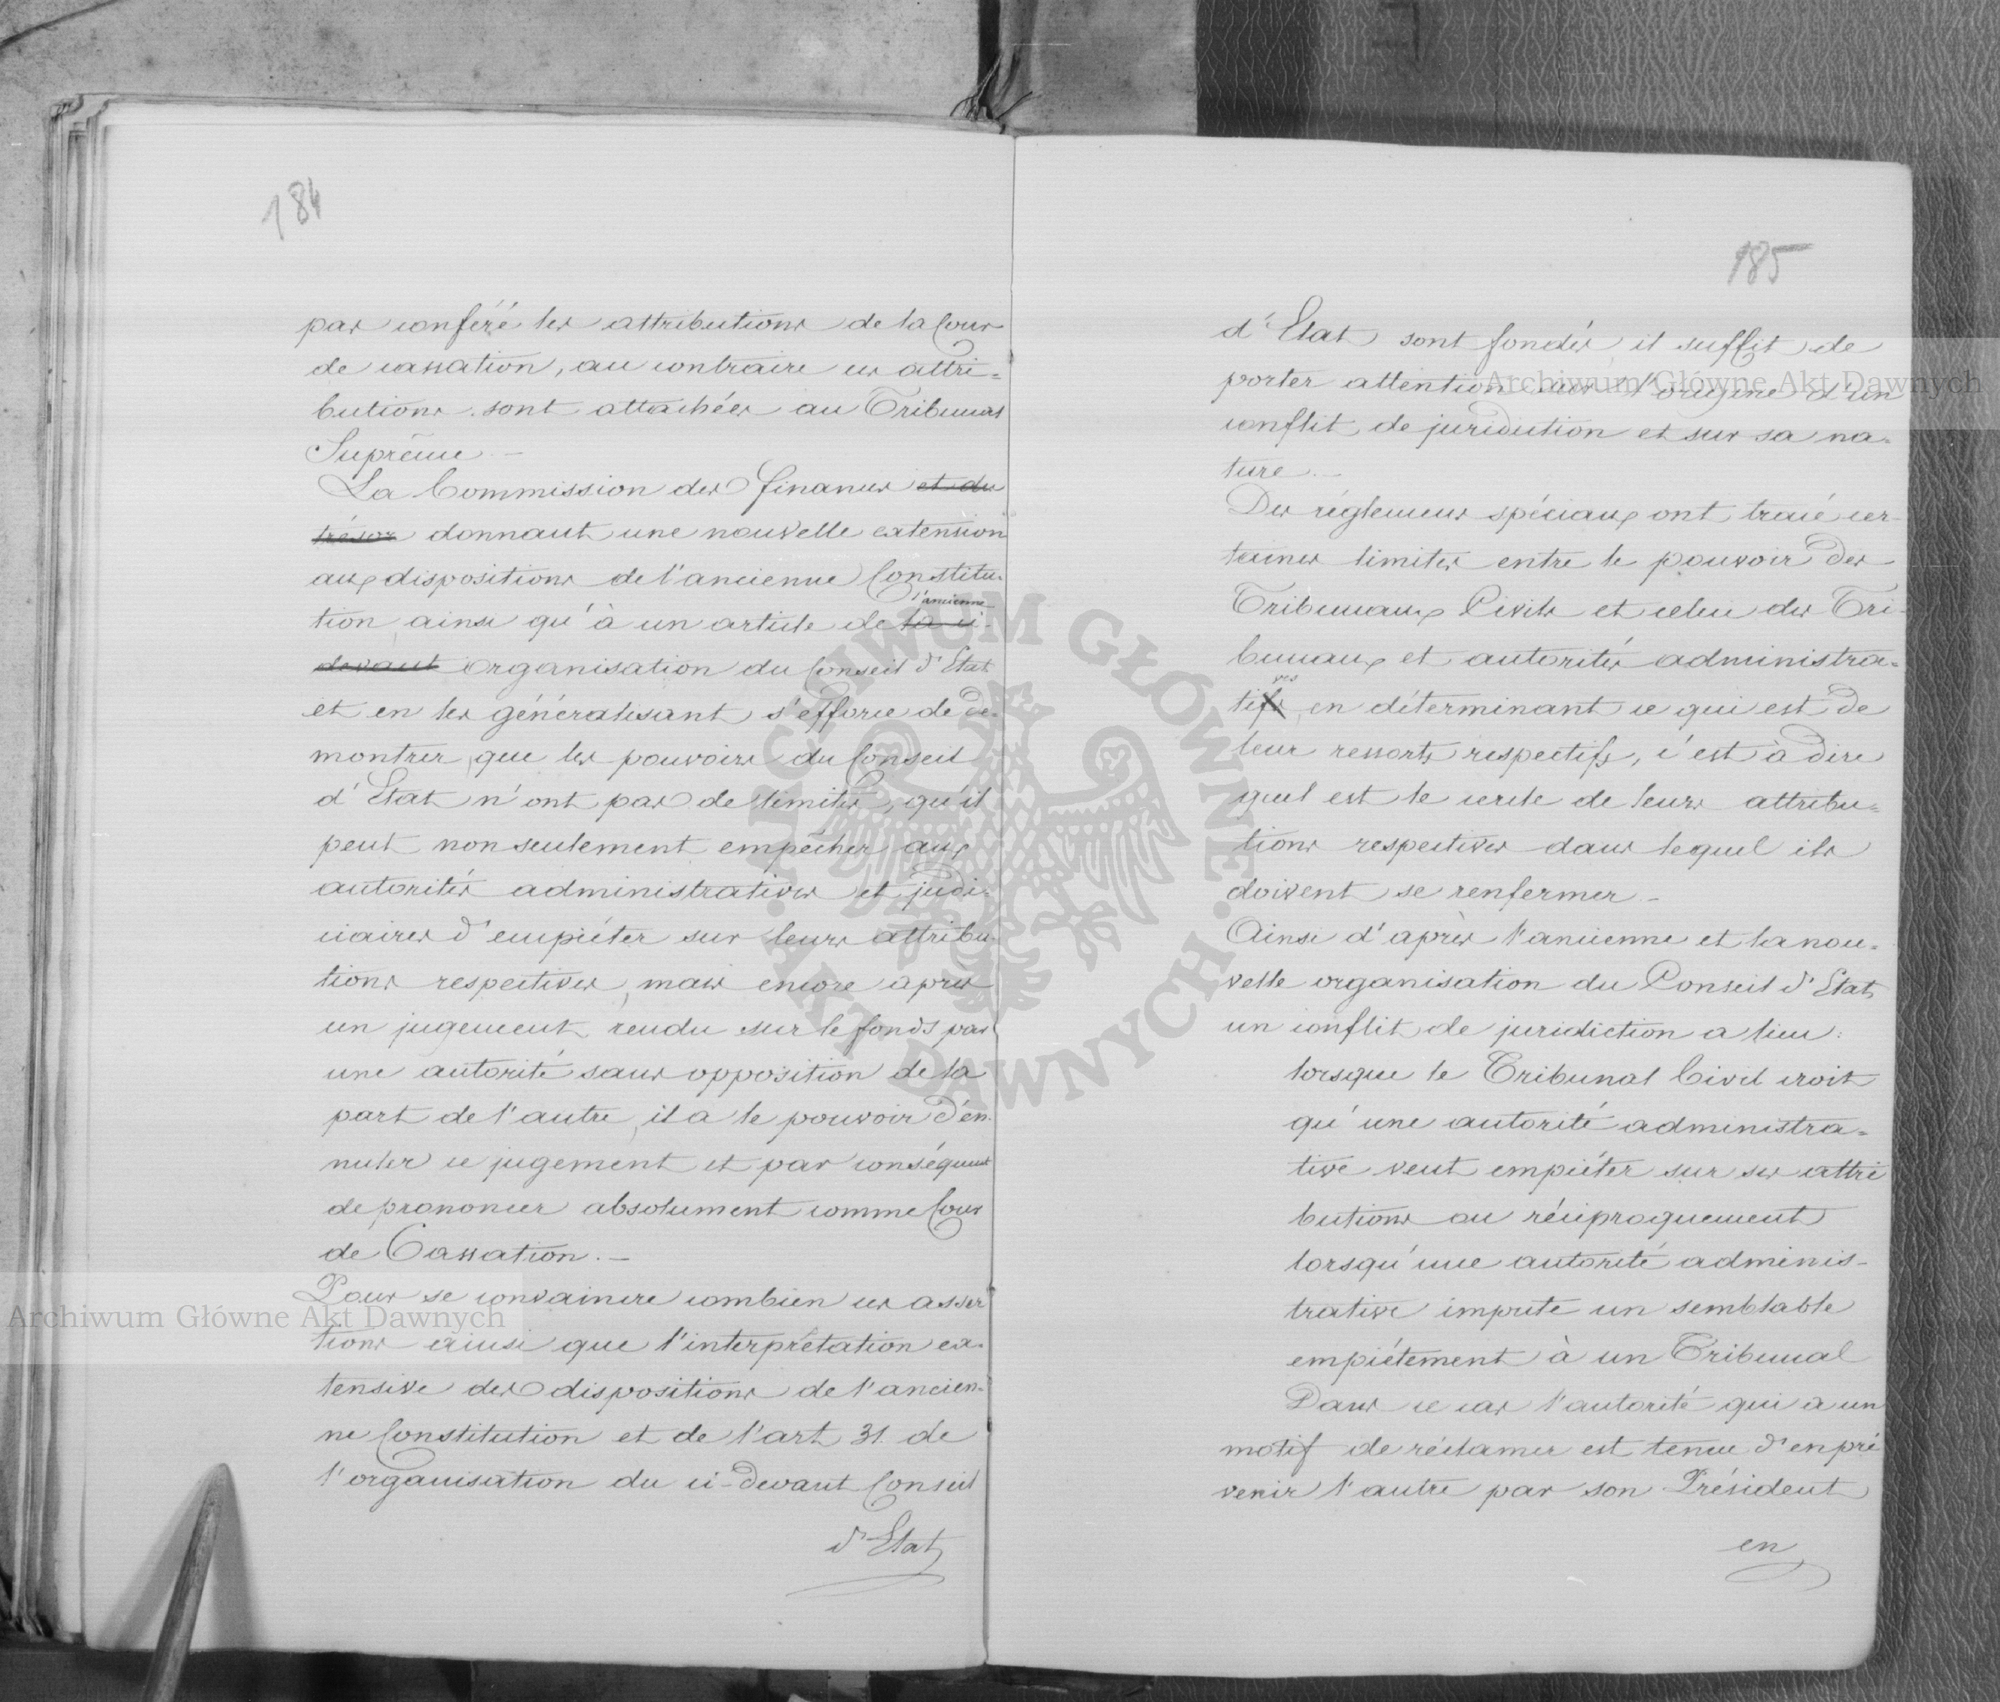 184
pas conféré les attributions de la Cour
de cassation, au contraire ces attri=
butions sont attachées au Tribunal
Suprême.—
La Commission des finances et du
trésor donnant une nouvelle extension
aux dispositions de l'ancienne Constitu-
l'ancienne
tion ainsi qu'à un article de la ci-
devant organisation du Conseil d'Etat
et en les généralisant s'efforce de dé-
montrer que les pouvoirs du Conseil
d'Etat n'ont pas de limites, qu'il
peut non seulement empêcher aux
autorités administratives et judi-
ciaires d'empiéter sur leurs attribu-
tions respectives, mais encore après
un jugement rendu sur le fonds par
une autorité sans opposition de la
part de l'autre, il a le pouvoir d'en-
nuler ce jugement et par conséquent
de prononcer absolument comme Cour
de Cassation.—
Pour se convaincre combien ces asser
tions ainsi que l'interprétation ex-
tensive des dispositions de l'ancien-
ne Constitution et de l'art 31. de
l'organisation du ci-devant Conseil
d'Etat
185
d'Etat sont fondés, il suffit de
porter attention sur l'origine d'un
conflit de juridiction et sur sa na-
ture.—
Des réglemens spéciaux ont tracé cer-
taines limites entre le pouvoir des
Tribunaux Civils et celui des Tri-
bunaux et autorités administra-
ves
tifs en déterminant ce qui est de
leur ressorts respectifs, c'est à dire
quel est le cercle de leurs attribu-
tions respectives dans lequel ils
doivent se renfermer.—
Ainsi d'après l'ancienne et la nou-
velle organisation du Conseil d'Etat,
un conflit de juridiction a lieu:
lorsque le Tribunal Civil croit
qu'une autorité administra-
tive veut empiéter sur ses attri
butions ou réciproquement
lorsqu'une autorité adminis-
trative impute un semblable
empiétement à un Tribunal
Dans ce cas l'autorité qui a un
motif de réclamer est tenue d'en pré
venir l'autre par son Président
en
Archiwum Główne Akt Dawnych
Archiwum Główne Akt Dawnych
ARCHIWUM GŁÓWNE AKT DAWNYCH